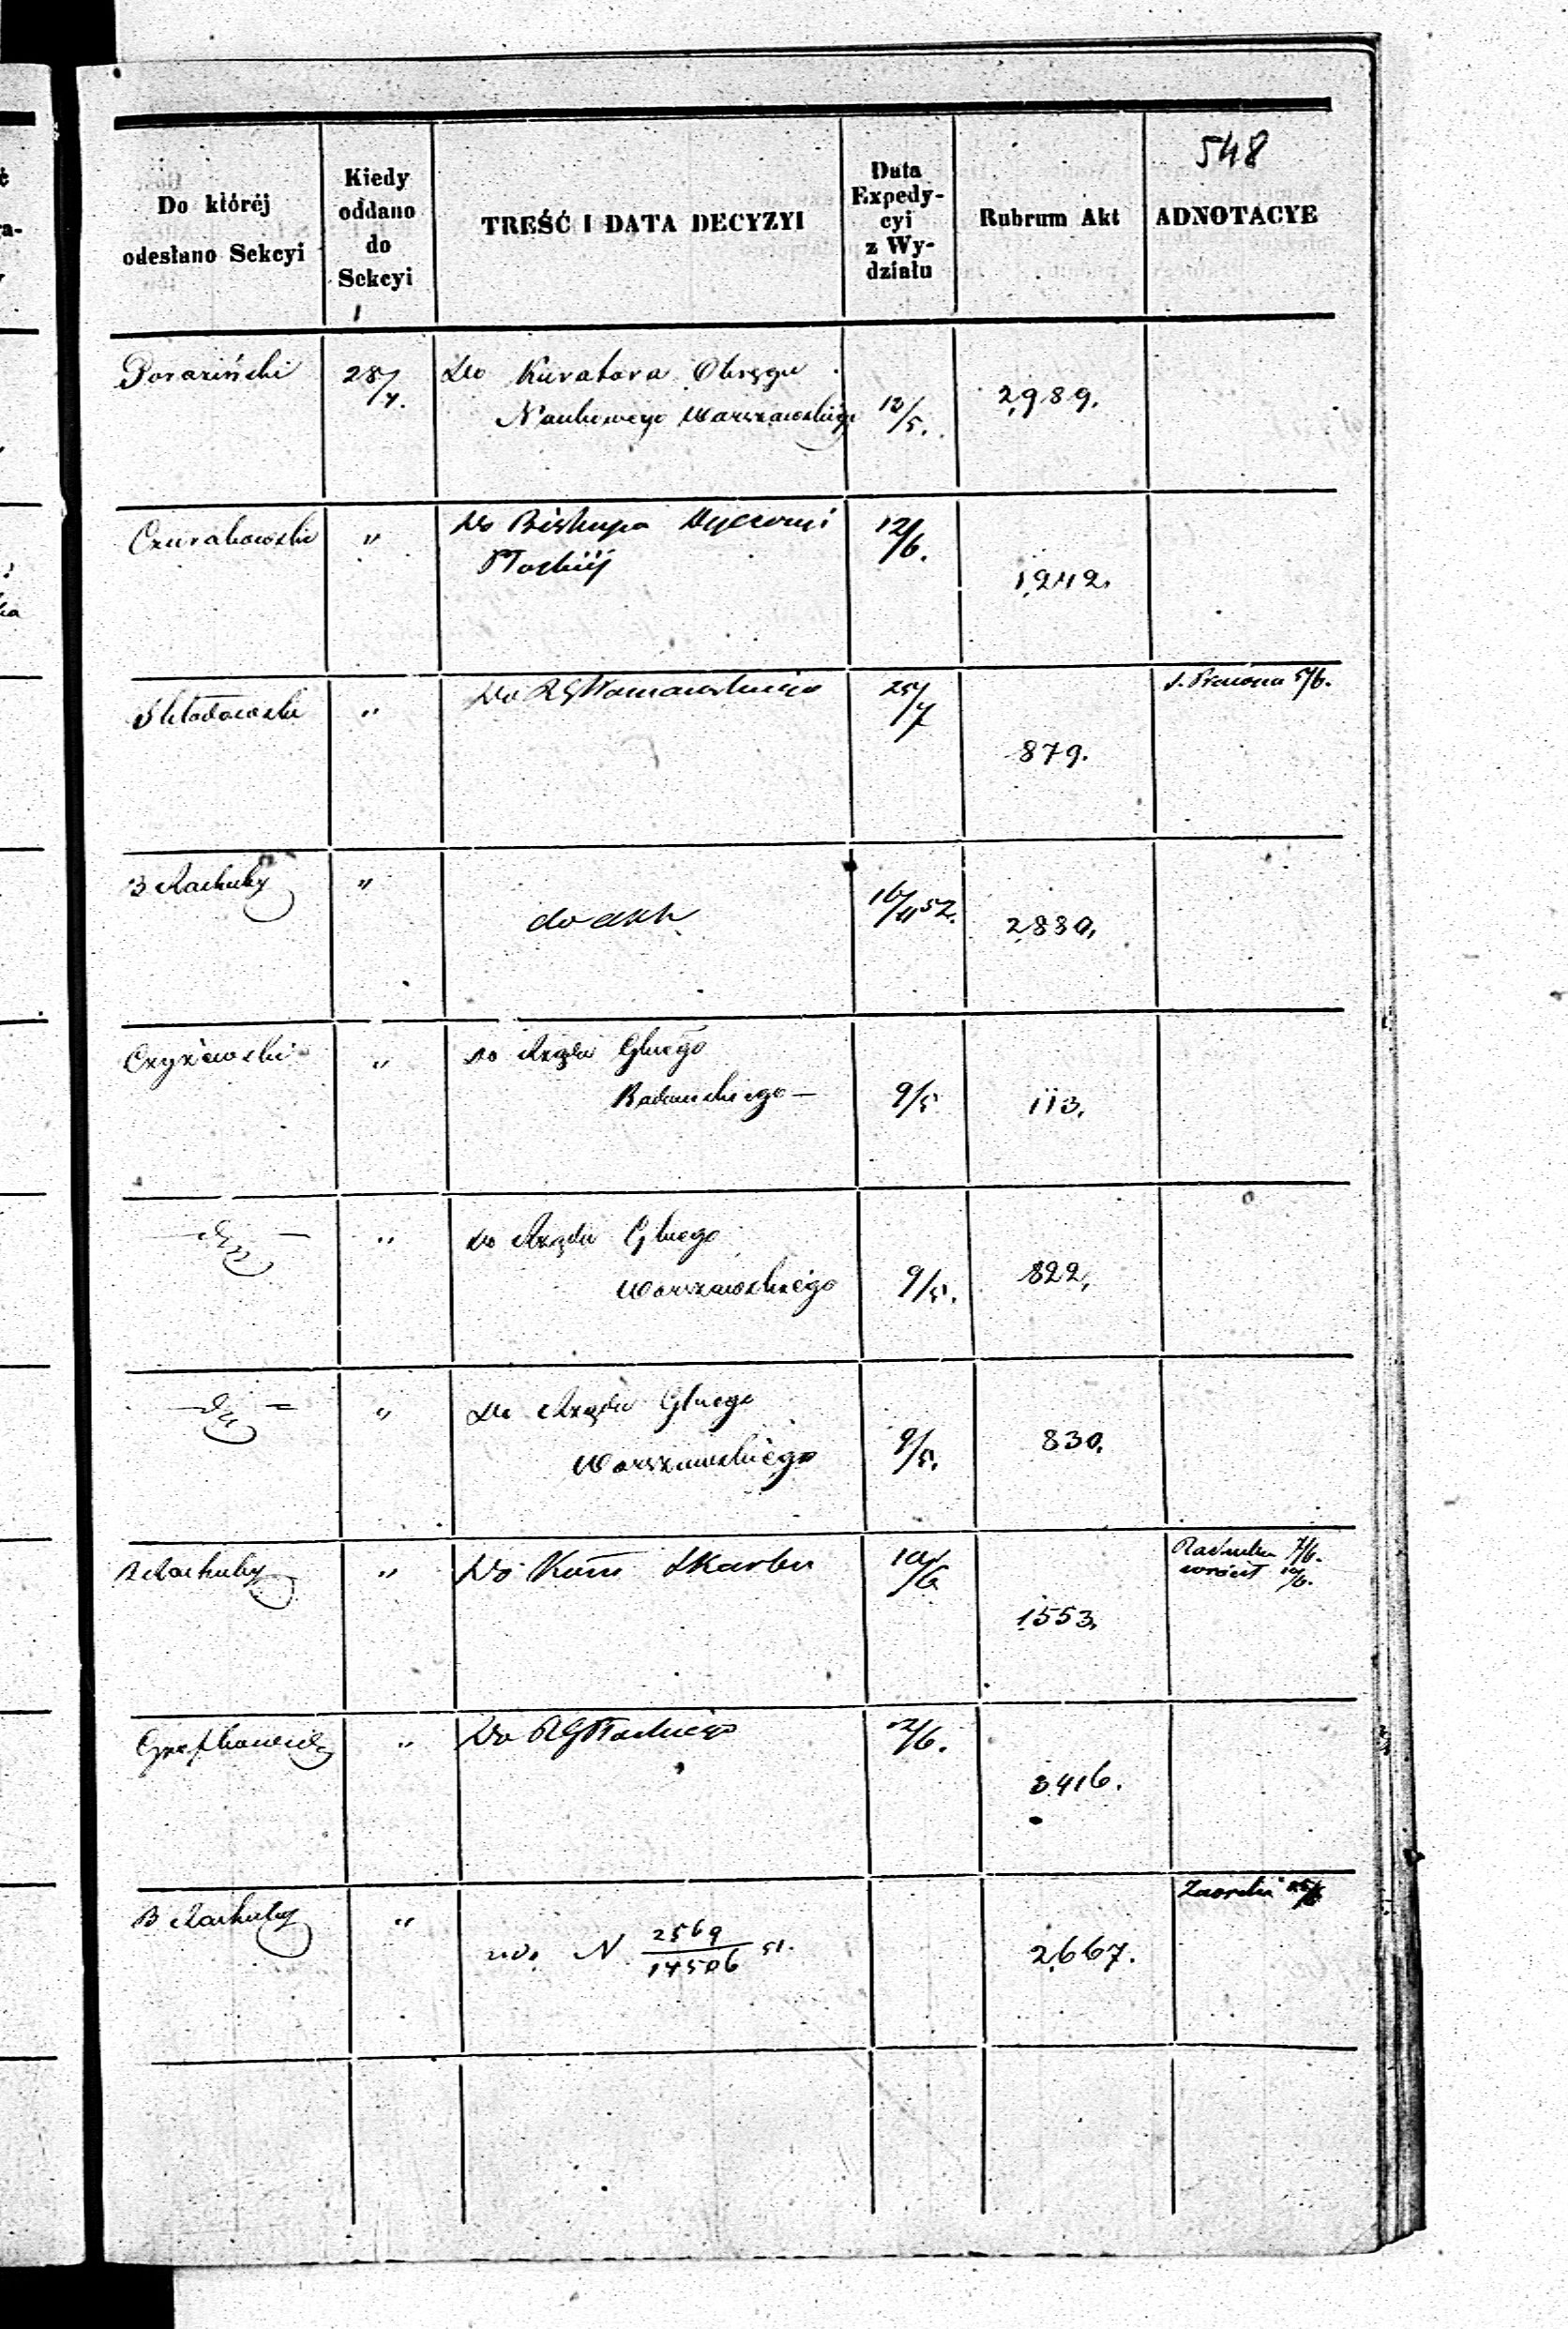 548
Do której odesłano Sekcyi
Kiedy oddano do Sekcyi
TREŚĆ I DATA DECYZYI
Data Expedycyi z Wydziału
Rubrum Akt
ADNOTACYE
Poraziński 28/4. Do Kuratora Okręgu
Naukowego Warszawskiego 12/5. 2989.
Czurakowski " Do Biskupa Dyecezyi 12/6.
Płockiéj 1242.
Skłodowski " Do RG 25/7 879. 5/6.
B Rachuby " do akt 16/11 52. 2830.
Czyżewski " Do Rządu Gbnego
Radomskiego — 9/5 113.
" Do Rządu Gbnego
Warszawskiego 9/5. 822.
" Do Rządu Gbnego
Warszawskiego 9/5. 830.
B Rachuby " Do Kom Skarbu 10/6 1553. 7/6.
wrócił 10/6.
" Do RG Płockiego 12/6. 3416.
B Rachuby " N 2569/14506 51. 2667.